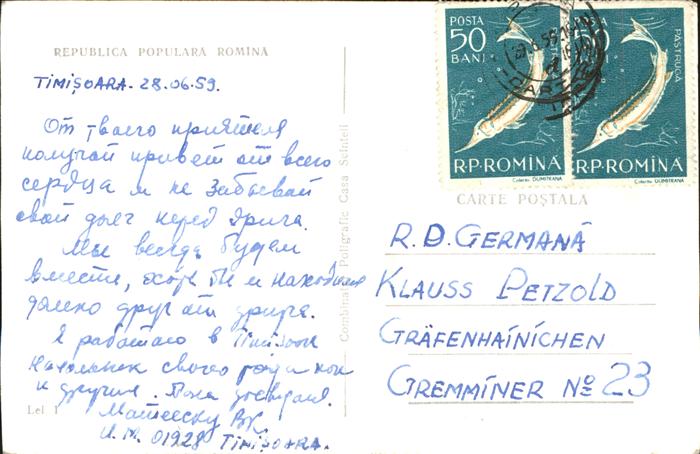 REPUBLICA POPULARA ROMINA
TIMIȘOARA. 28.06.59.
От твоего приятеля
получай привет от всего
сердца и не забывай
свой долг перед друга.
Мы всегда будем
вместе, хотя бы и находимся
далеко друг от друга.
Я работаю в Timisoara
своего рода как
и другие. Пока досвидания.
И.М. 01928 TIMIȘOARA.
Lei 1
Combinatul Poligrafic Casa Scînteii
POSTA
50
BANI
R.P.ROMINA
POSTA
BANI
PASTRUGA
R.P.ROMINA
CARTE POȘTALA
R.D. GERMANĂ
KLAUSS PETZOLD
GRÄFENHAINICHEN
GREMMINER No 23